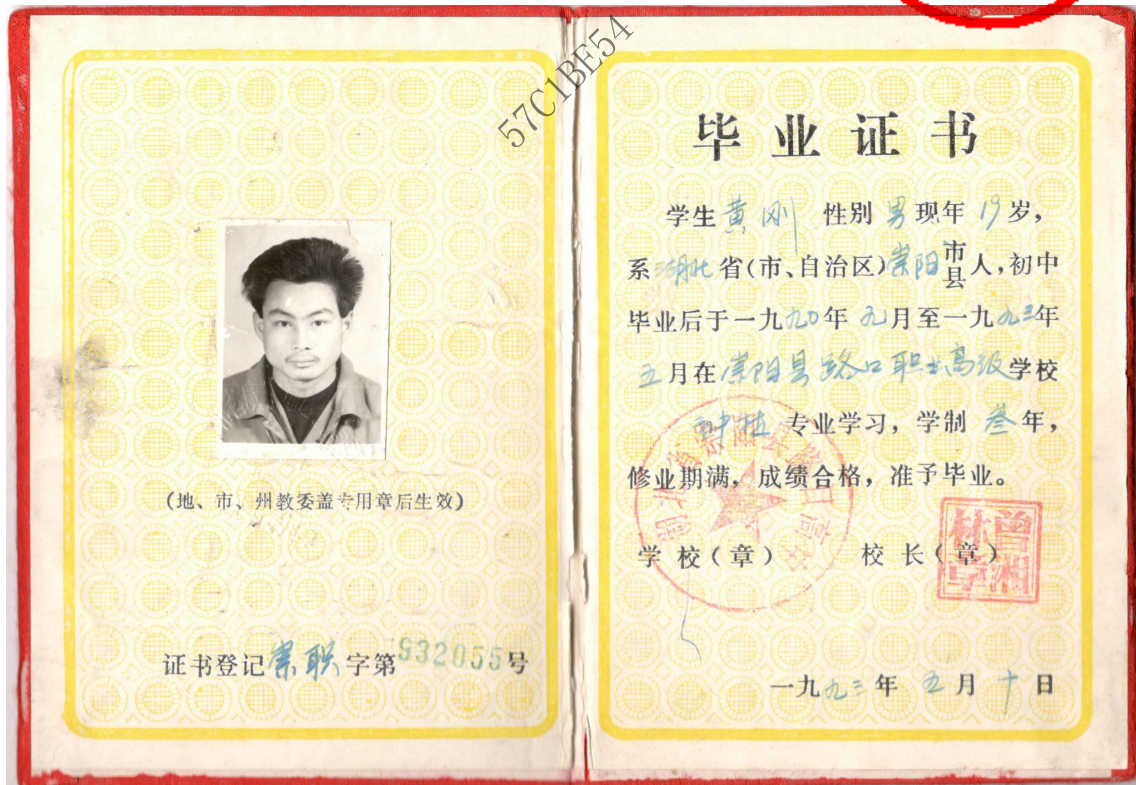 57C1BE54
(地、市、州教委盖专用章后生效)
证书登记崇职字第932055号
毕业证书
学生黄刚 性别男现年19岁,
系湖北省(市、自治区)崇阳市县人,初中
毕业后于一九九〇年九月至一九九三年
五月在崇阳县路口职业高级学校
种植专业学习,学制叁年,
修业期满,成绩合格,准予毕业。
学校(章) 校长(章)
一九九三年五月十日